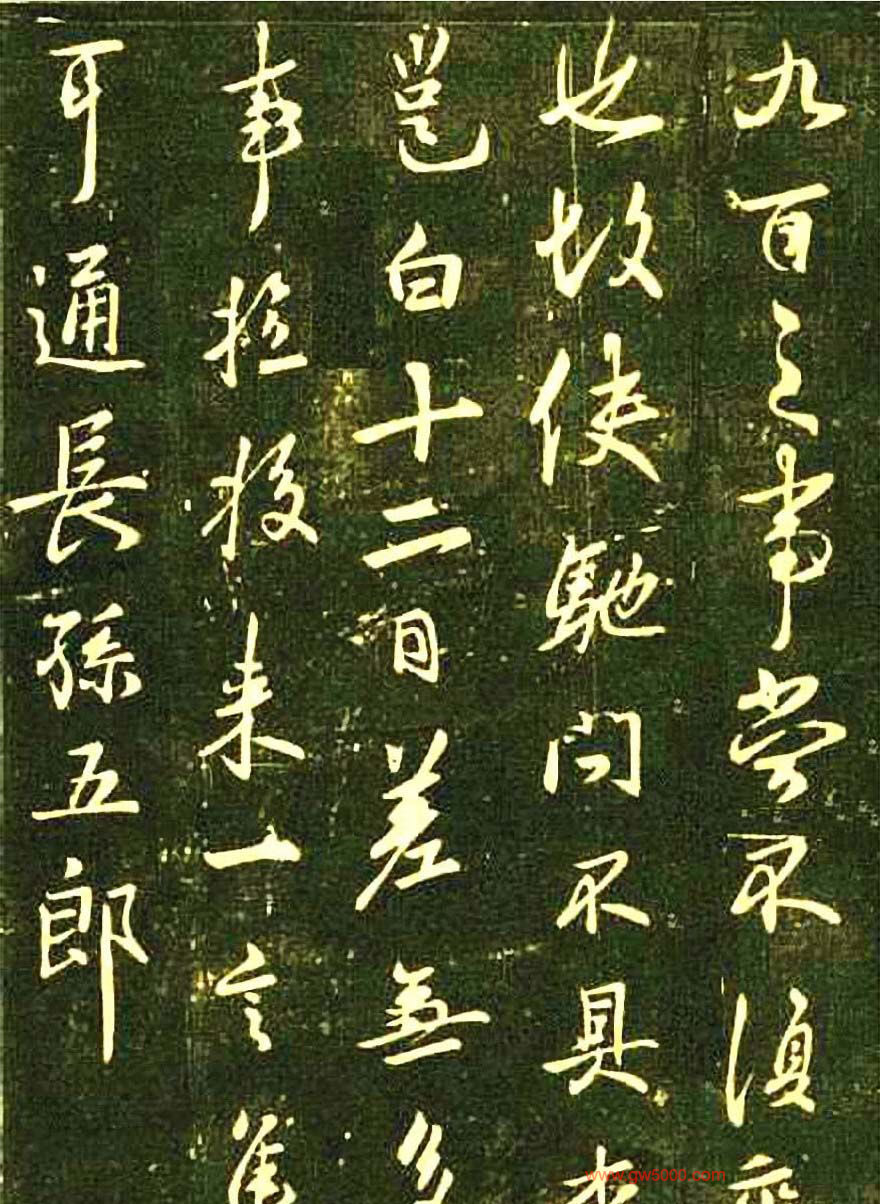 九百之事當不須
也故使馳問不具
邕白十二日差無多
事投来一言
耳通長孫五郎
www.gw5000.com